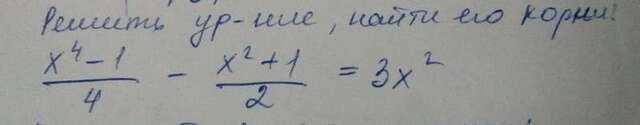 Решить ур-ние, найти его корни:
(x⁴ − 1)/4 − (x² + 1)/2 = 3x²